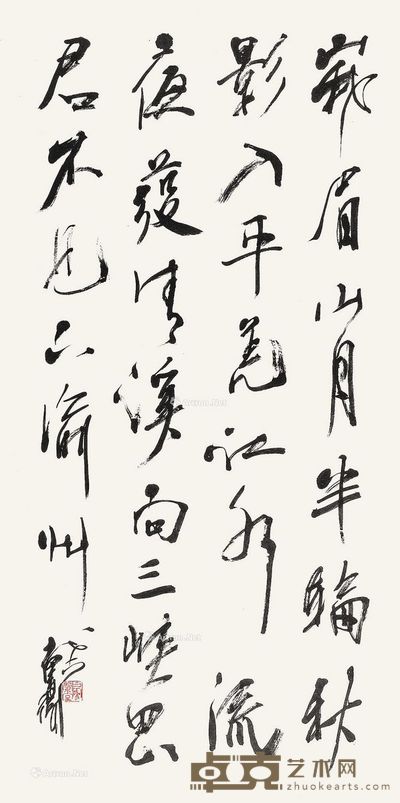 峩眉山月半輪秋
影入平羌江水流
夜發清溪向三峽思
君不見下渝州
卓克艺术网
zhuokearts.com